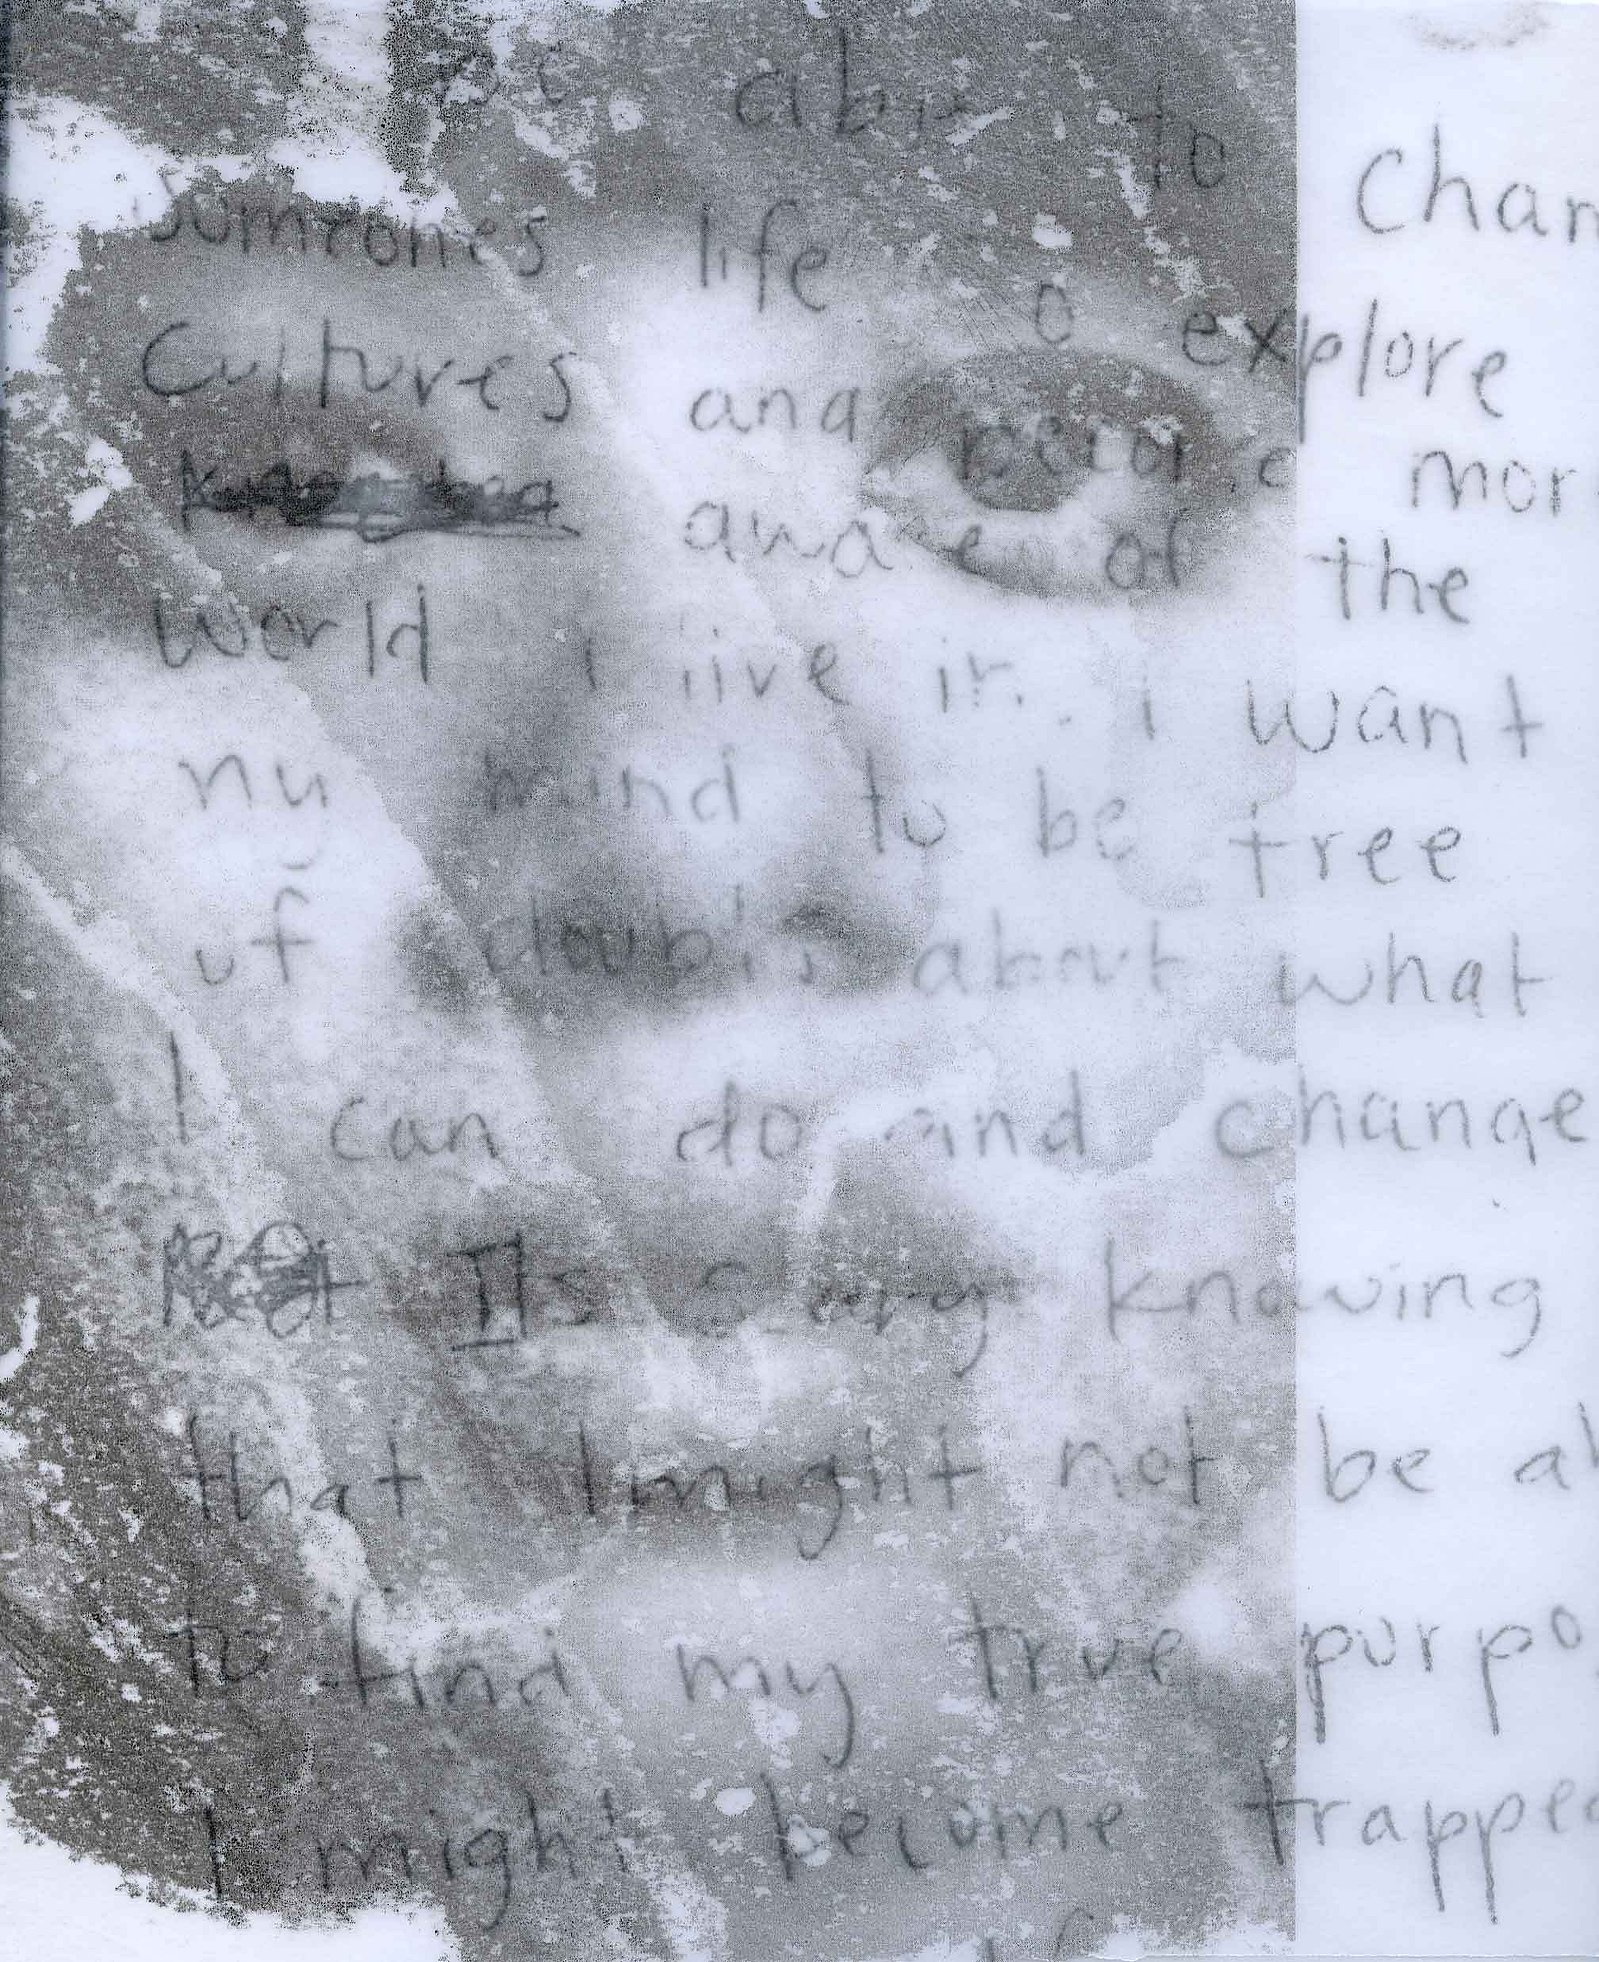 be able to chan
Someones life o explore
Cultures and become mor
aware of the
world I live in. i want
my mind to be free
of doubts about what
I can do and change
Its scary knowing
that I might not be ab
to find my true purpo
I might become trapped